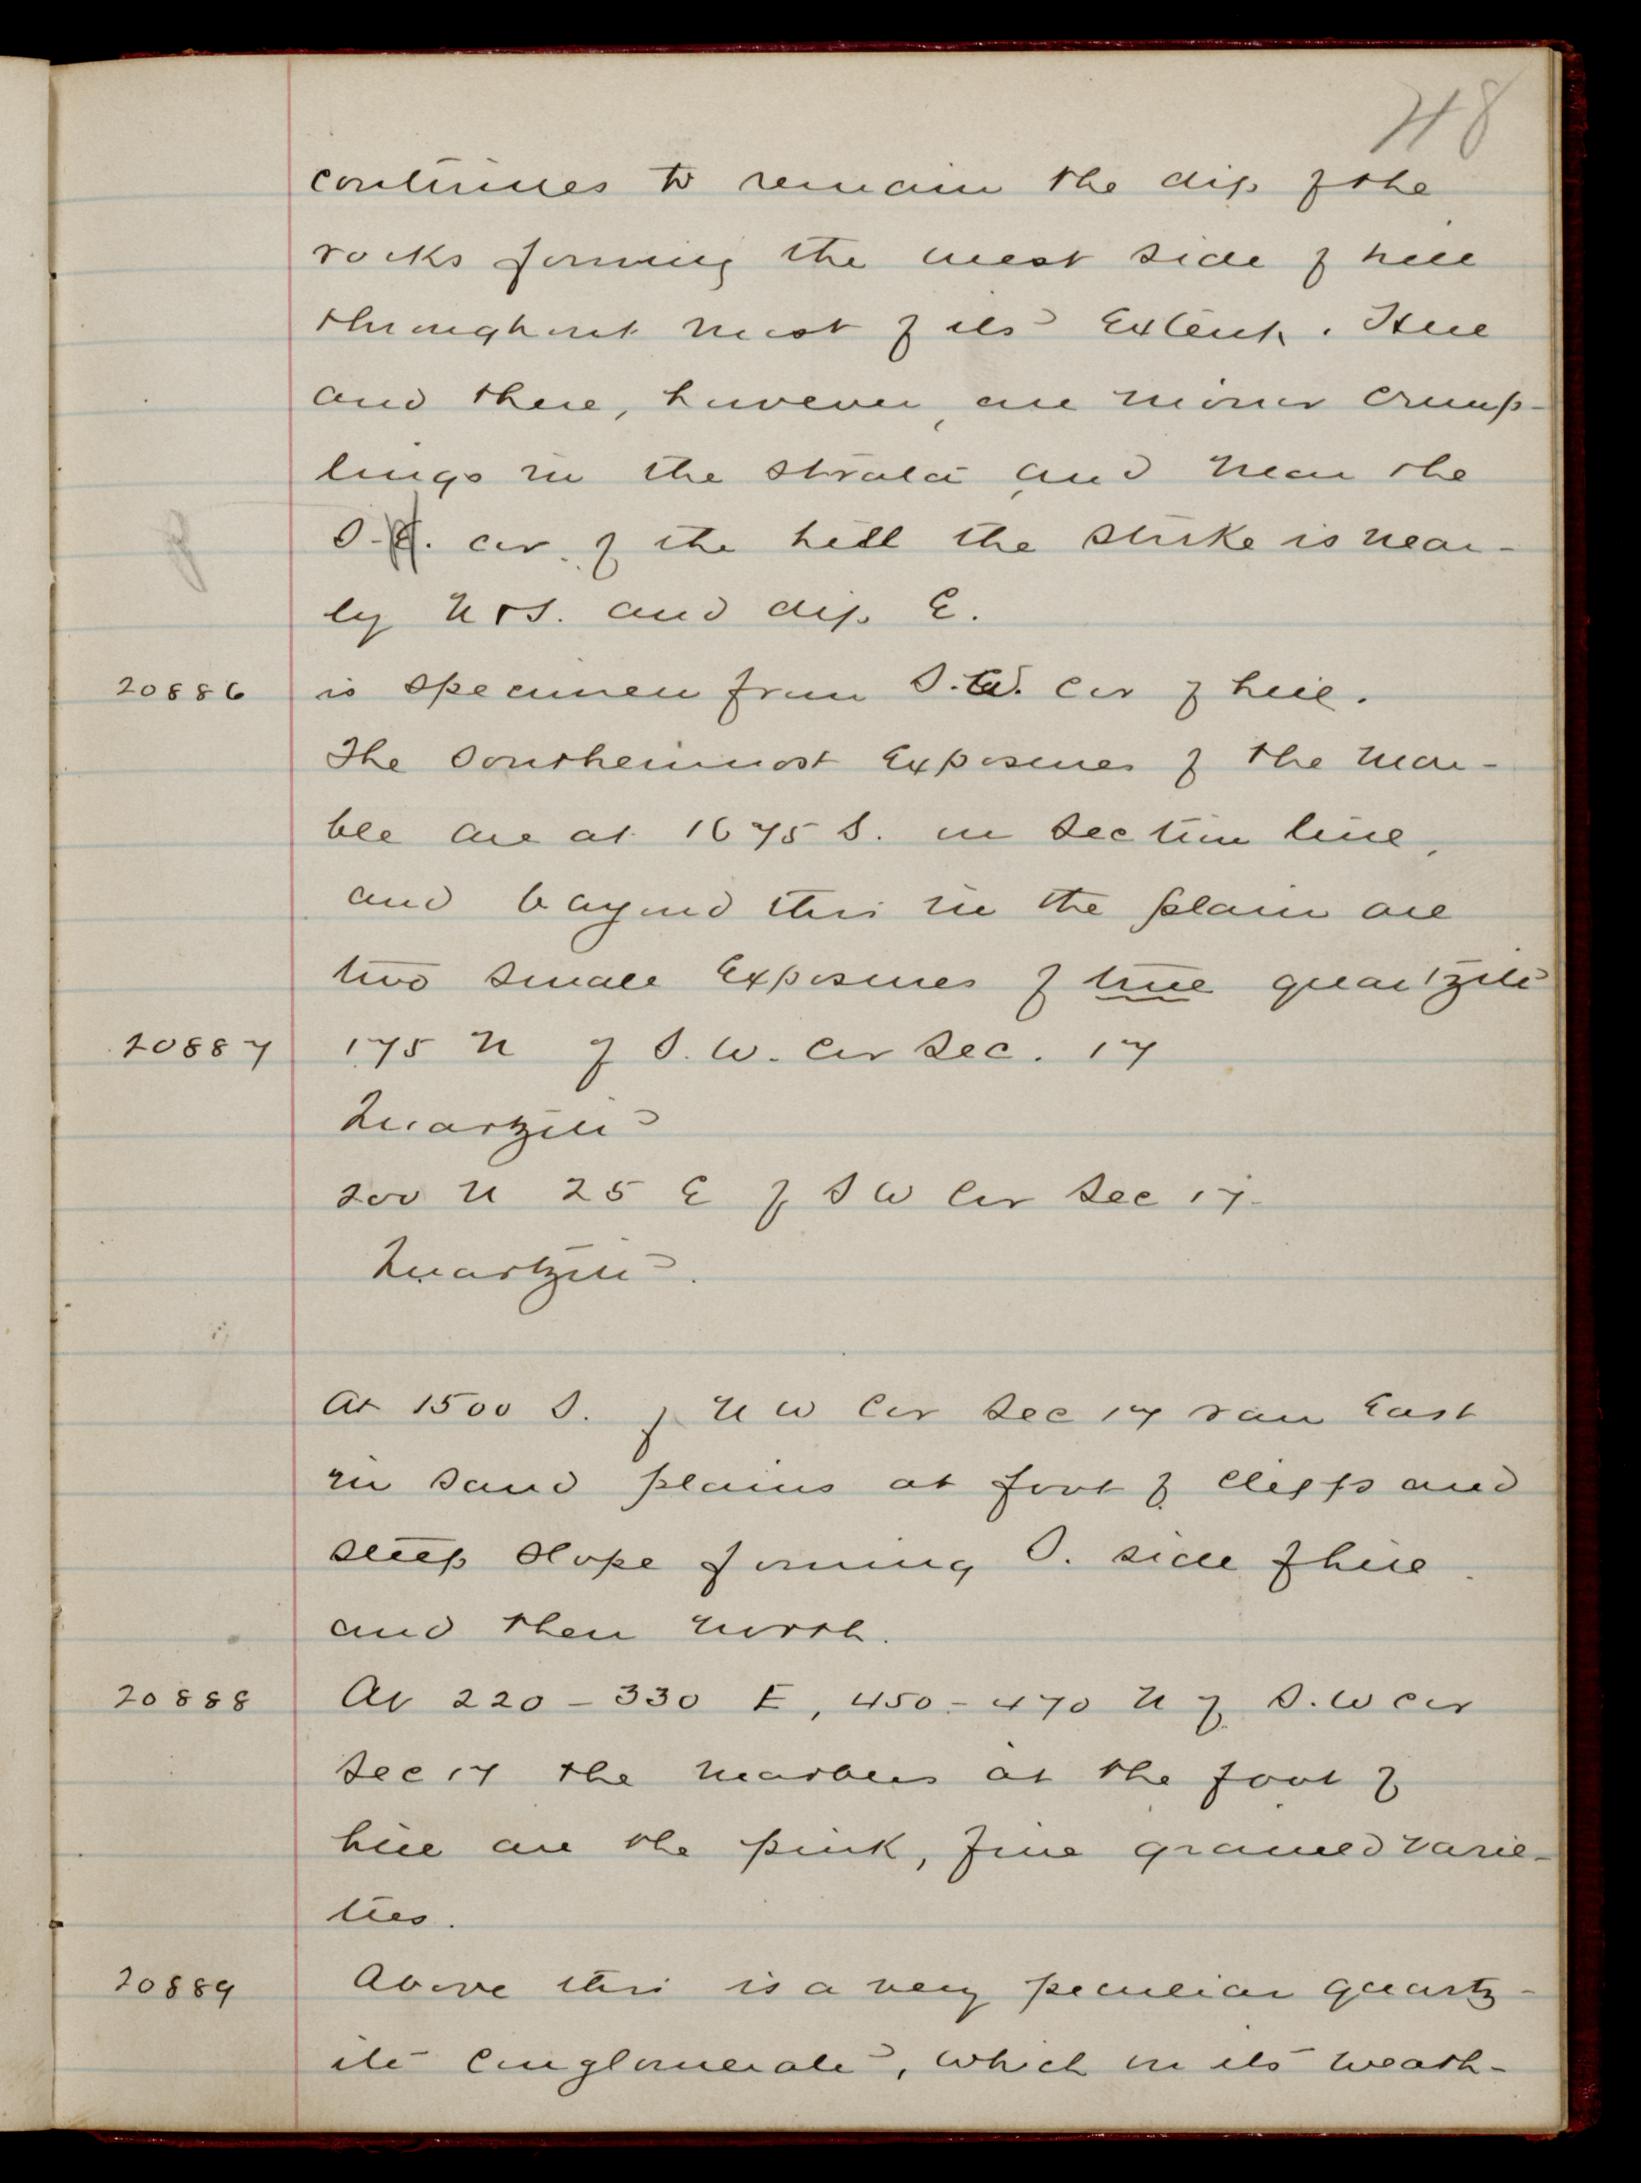 48
continues to remain the dip of the
rocks forming the west side of hill
throughout most of its extent. Here
and there, however, are minor crump-
lings in the strata and near the
S.E. cor. of the hill the strike is near-
ly N & S. and dip E.
20886 is specimen from S.W. cor of hill.
The southernmost exposures of the mar-
ble are at 1675 S. on section line,
and beyond this in the plain are
two small exposures of true quartzite
20887 175 N of S.W. Cor Sec. 17
Quartzite
200 N 25 E of S W Cor Sec 17.
Quartzite.
At 1500 S. of N W Cor Sec 17 ran East
in sand plains at foot of cliffs and
steep slope forming S. side of hill
and then north.
20888 At 220 - 330 E, 450 - 470 N of S.W cor
Sec 17 the marbles at the foot of
hill are the pink, fine grained varie-
ties.
20889 Above this is a very peculiar quartz-
ite conglomerate, which on its weath-